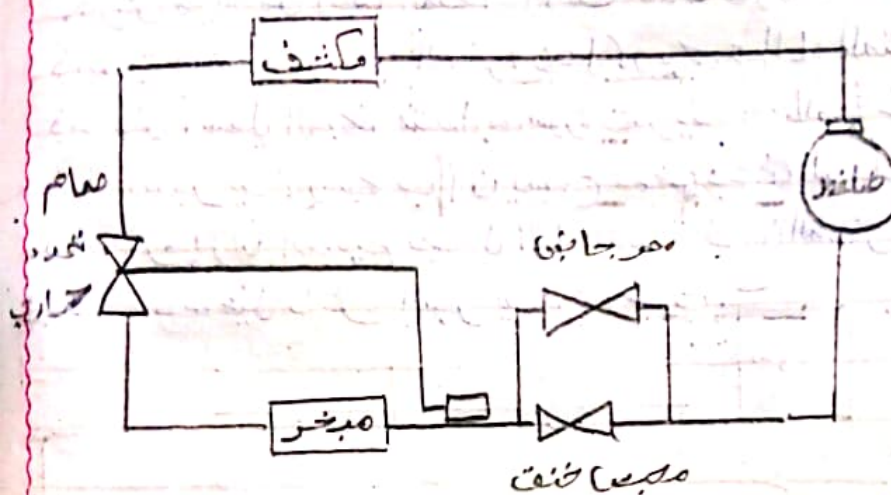 مكثف
ضاغط
صمام
تمدد
حراري
ممر جانبي
مبخر
محبس خنق